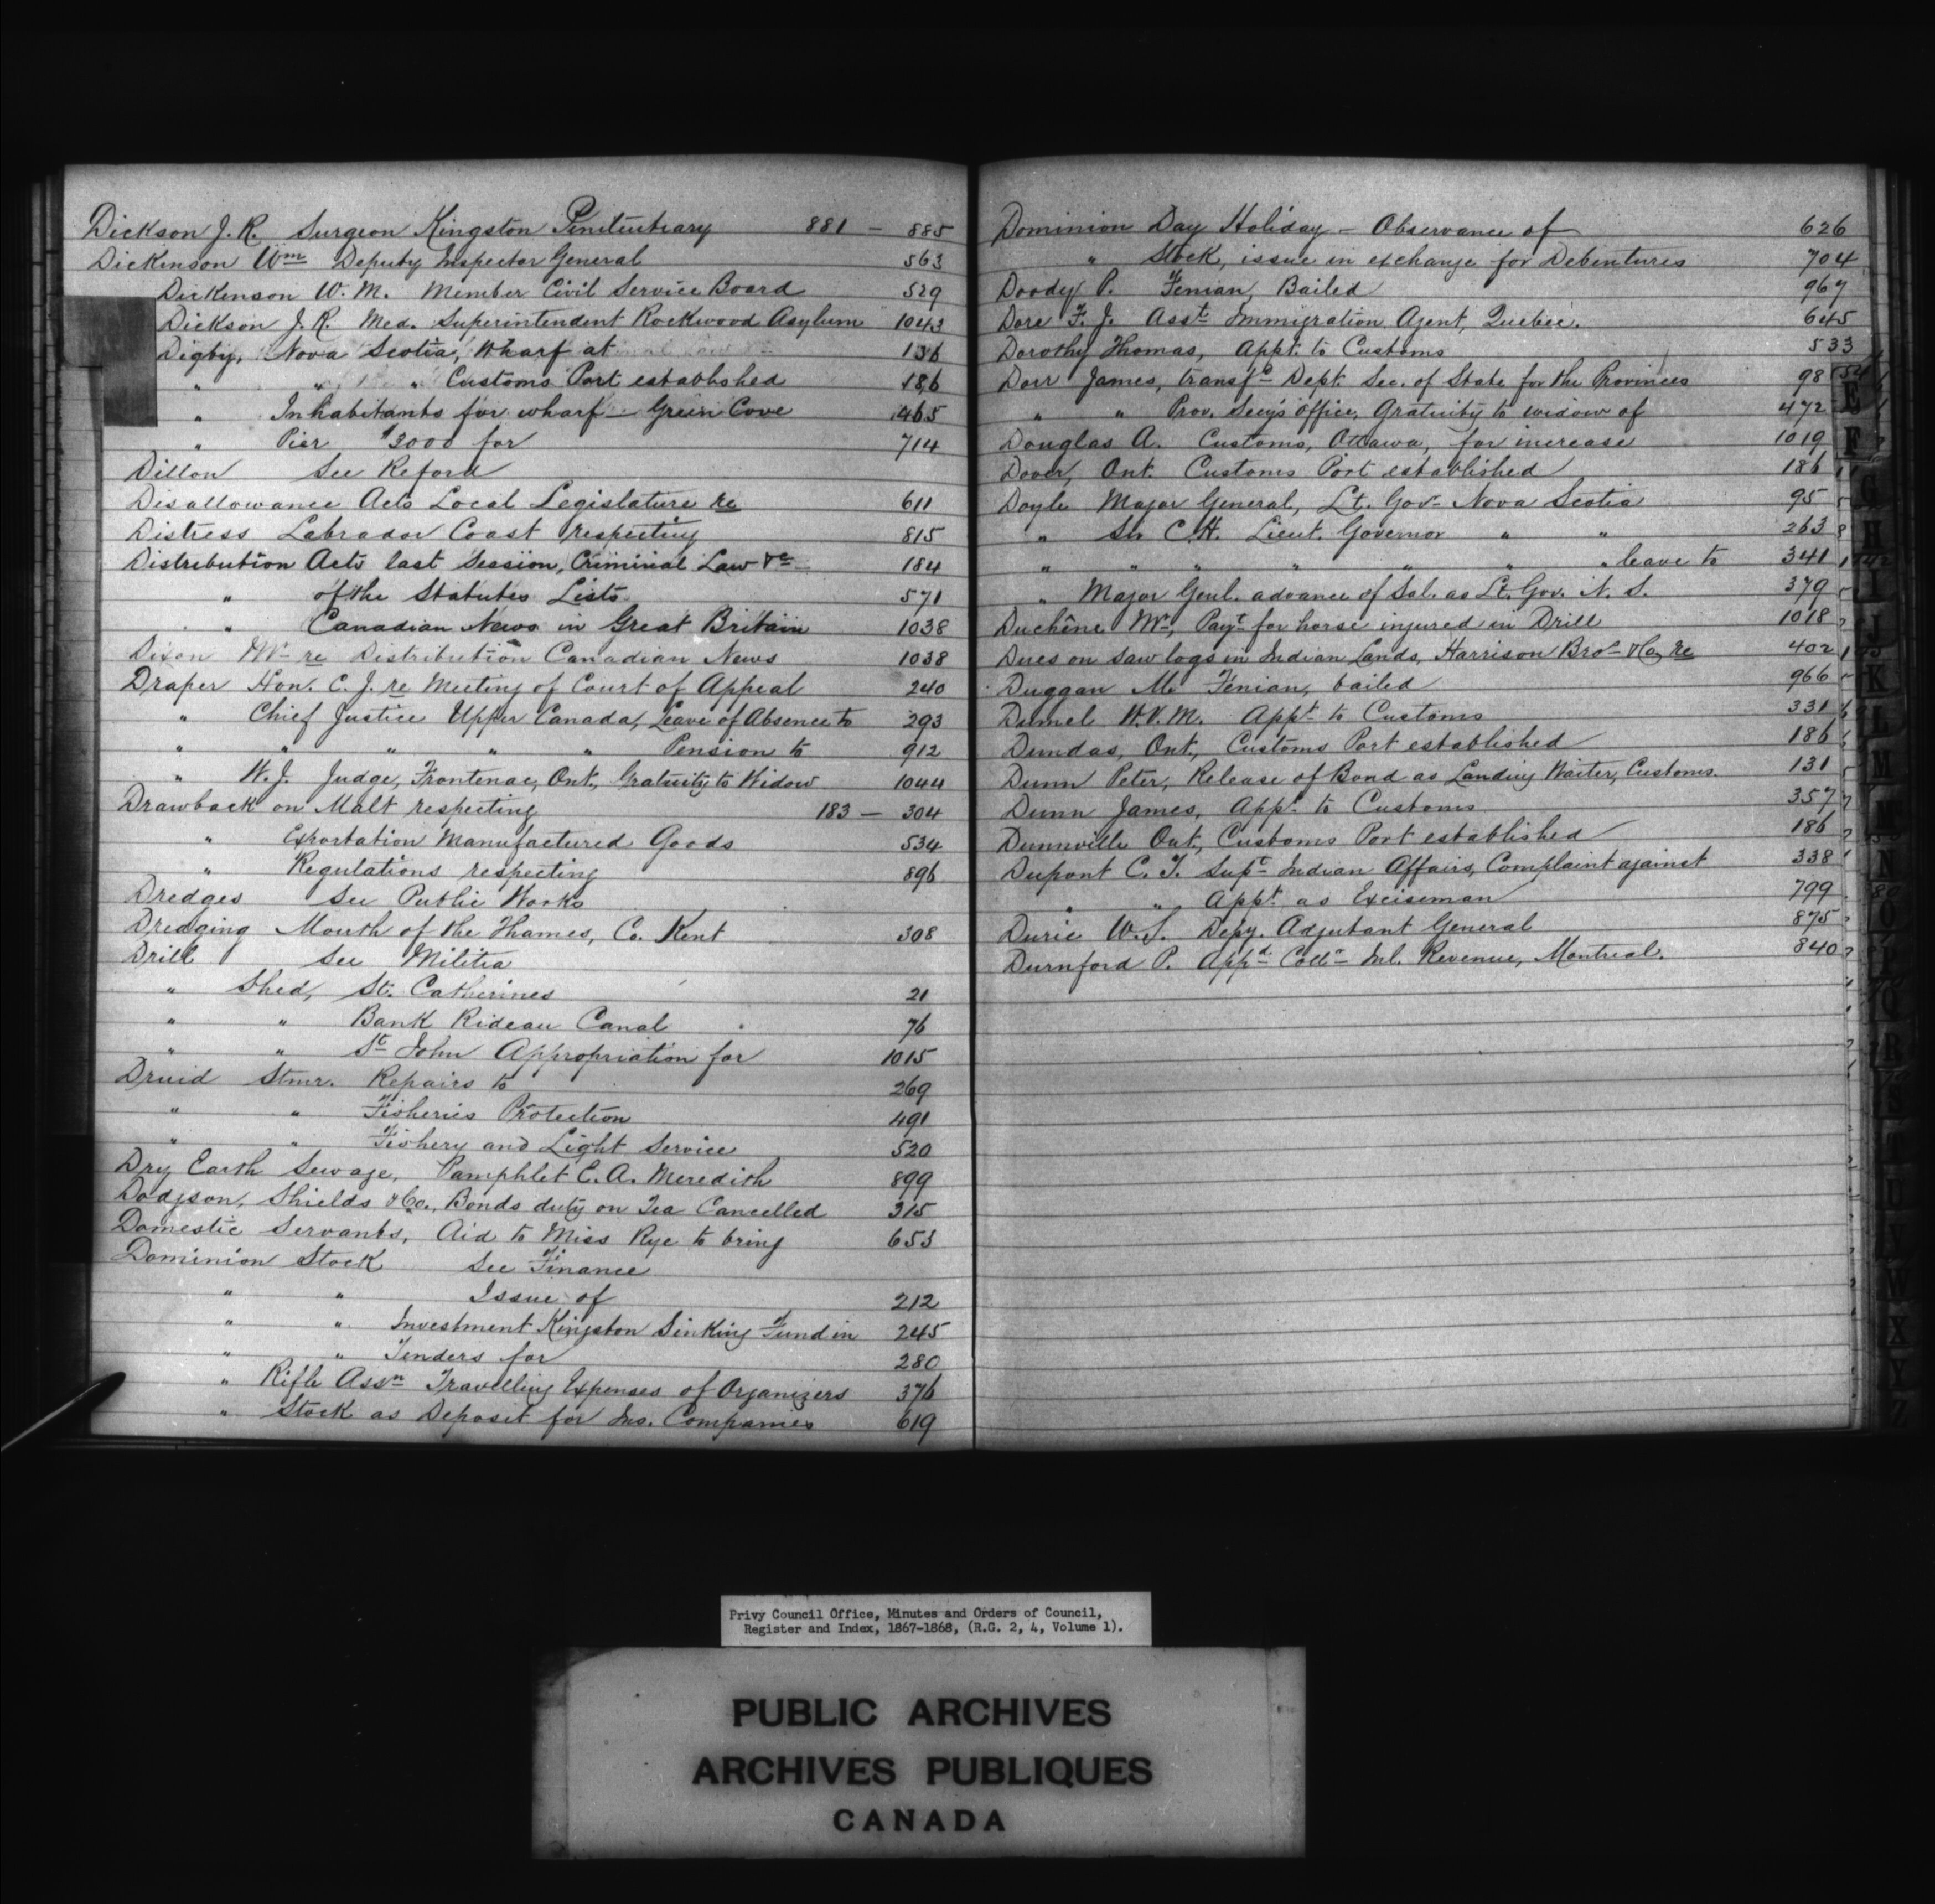 Dickson J. R. Surgeon Kingston Penitentiary 881 — 885
Dickinson Wm Deputy Inspector General 563
Dickenson W. M. Member Civil Service Board 529
Dickson J. R. Med. Superintendent Rockwood Asylum 1043
Digby, Nova Scotia, Wharf at 136
" " " Customs Port established 186
" Inhabitants for wharf — Green Cove 465
" Pier $3000 for 714
Dillon See Reford
Disallowance Acts Local Legislature re 611
Distress Labrador Coast respecting 815
Distribution Acts last Session, Criminal Law &c 184
" of the Statutes Lists 571
" Canadian News in Great Britain 1038
Dixon Mr re Distribution Canadian News 1038
Draper Hon. C. J. re Meeting of Court of Appeal 240
" Chief Justice Upper Canada, Leave of Absence to 293
" " " " " Pension to 912
" W. J. Judge, Frontenac, Ont., Gratuity to Widow 1044
Drawback on Malt respecting 183 — 304
" Exportation Manufactured Goods 534
" Regulations respecting 896
Dredges See Public Works
Dredging Mouth of the Thames, Co. Kent 308
Drill See Militia
" Shed, St. Catherines 21
" " Bank Rideau Canal 76
" " St John Appropriation for 1015
Druid Stmr. Repairs to 269
" " Fisheries Protection 491
" " Fishery and Light Service 520
Dry Earth Sewage, Pamphlet E. A. Meredith 899
Dodgson, Shields & Co., Bonds duty on Tea Cancelled 315
Domestic Servants, Aid to Miss Rye to bring 653
Dominion Stock See Finance
" " Issue of 212
" " Investment Kingston Sinking Fund in 245
" " Tenders for 280
" Rifle Assn Travelling Expenses of Organizers 376
" Stock as Deposit for Ins. Companies 619
Dominion Day Holiday — Observance of 626
" Stock, issue in exchange for Debentures 704
Doody P. Fenian, Bailed 967
Dore F. J. Asst Immigration Agent, Quebec. 645
Dorothy Thomas, Appt. to Customs 533
Dorr James, transfd Dept. Sec. of State for the Provinces 98
" " Prov. Secy's Office, Gratuity to widow of 472
Douglas A. Customs, Ottawa, for increase 1019
Dover, Ont. Customs Port established 186
Doyle Major General, Lt. Gov. Nova Scotia 95
" Sir C. H. Lieut. Governor " " 263
" " " " " " " leave to 341
" Major Genl. advance of Sal. as Lt. Gov. N. S. 379
Duchêne Mr, Payt for horse injured in Drill 1018
Dues on Saw logs in Indian Lands, Harrison Bros & Co, re 402
Duggan M. Fenian, bailed 966
Dumel H. V. M. Appt to Customs 331
Dundas, Ont., Customs Port established 186
Dunn Peter, Release of Bond as Landing Waiter, Customs. 131
Dunn James, Appt to Customs 357
Dunnville Ont, Customs Port established 186
Dupont C. T. Supt Indian Affairs, Complaint against 338
" " Appt. as Exciseman 799
Durie W. S. Depy. Adjutant General 875
Durnford P. Appd Collr Inl. Revenue, Montreal. 840
E
F
G
H
I
J
K
L
M
N
O
Q
R
S
T
U
W
X
Y
Z
Privy Council Office, Minutes and Orders of Council,
Register and Index, 1867-1868, (R.G. 2, 4, Volume 1).
PUBLIC ARCHIVES
ARCHIVES PUBLIQUES
CANADA